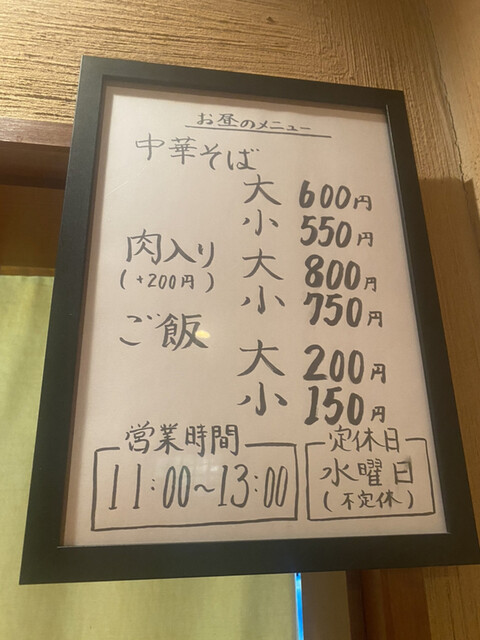 お昼のメニュー
中華そば
大 600円
小 550円
肉入り 大 800円
(+200円) 小 750円
ご飯
大 200円
小 150円
営業時間
11:00~13:00
定休日
水曜日
(不定休)